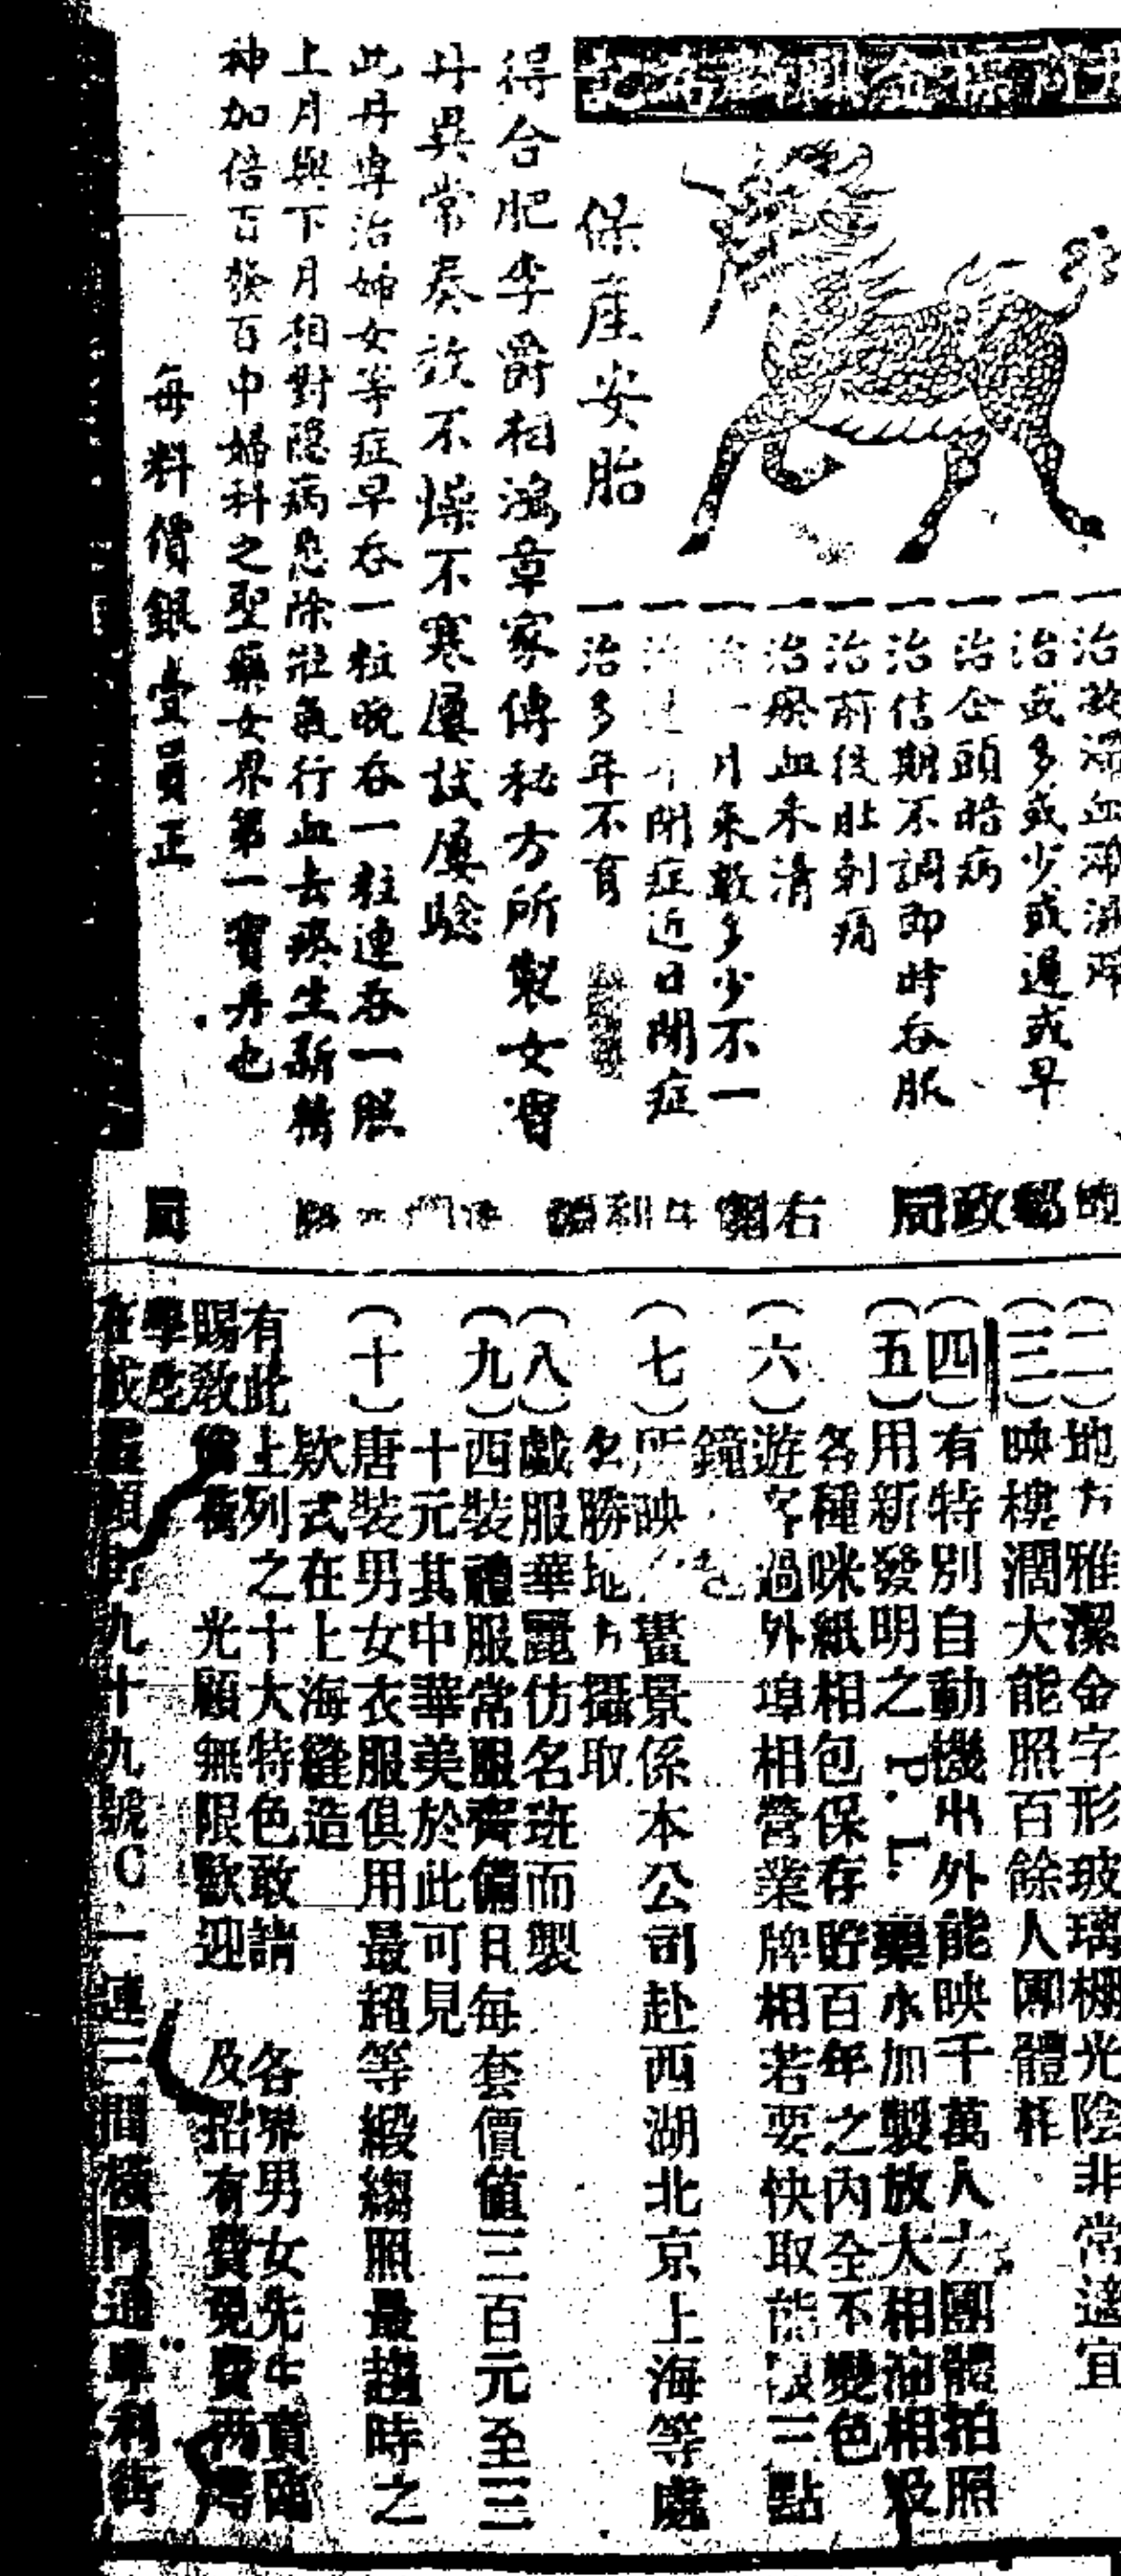 保產安胎
一治或多或少或遲或早
一治企頭暗病
一治信期不調即時吞服
一治前後肚刺痛
一治瘀血未清
一月來數多少不一
閉症近日閉症
一治多年不育
得合肥李爵相鴻章家傳秘方所製女寶
丹異常奏效不燥不寒屢試屢驗
此丹專治婦女等症早吞一粒晚吞一粒連吞一照
上月與下月相對隱病悉除壯氣行血去瘀生新精
神加倍百發百中婦科之聖藥女界第一寶丹也
每料價銀壹員正
右
郵政局
局
(二)地方雅潔金字形玻璃棚光陰非常適宜
(三)映樓濶大能照百餘人團體
(四)有特別自動機出外能映千萬人大團體拍照
(五)用新發明之P.L.藥水加製放大相油相及
各種咪紙相包保存貯百年之內全不變色
(六)遊客過外埠相營業牌相若要快取三點
鐘
(七)所映畫景係本公司赴西湖北京上海等處
名勝地方攝取
(八)戲服華麗仿名班而製
(九)西裝禮服常服齊備且每套價值三百元至三
十元其中華美於此可見
(十)唐裝男女衣服俱用最超等緞縐照最趨時之
欵式在上海縫造
有此上列之十大特色敢請 各界男女先生賁臨
賜教 光顧無限歡迎 及招有費免費兩
學生
九十九號C一連三間樓門通專利街